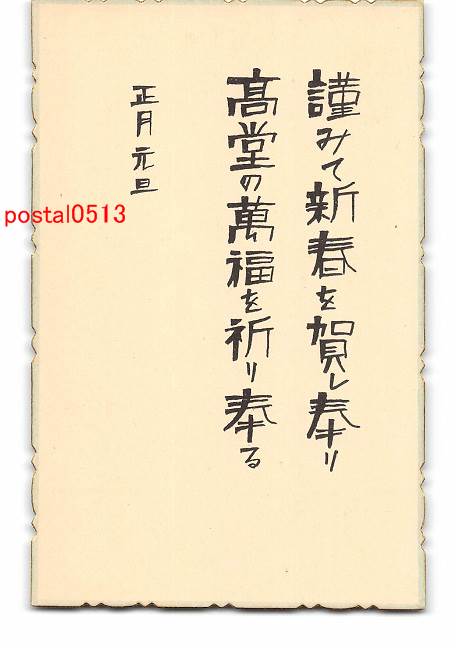 謹みて新春を賀し奉り
高堂の萬福を祈り奉る
正月元旦
postal0513